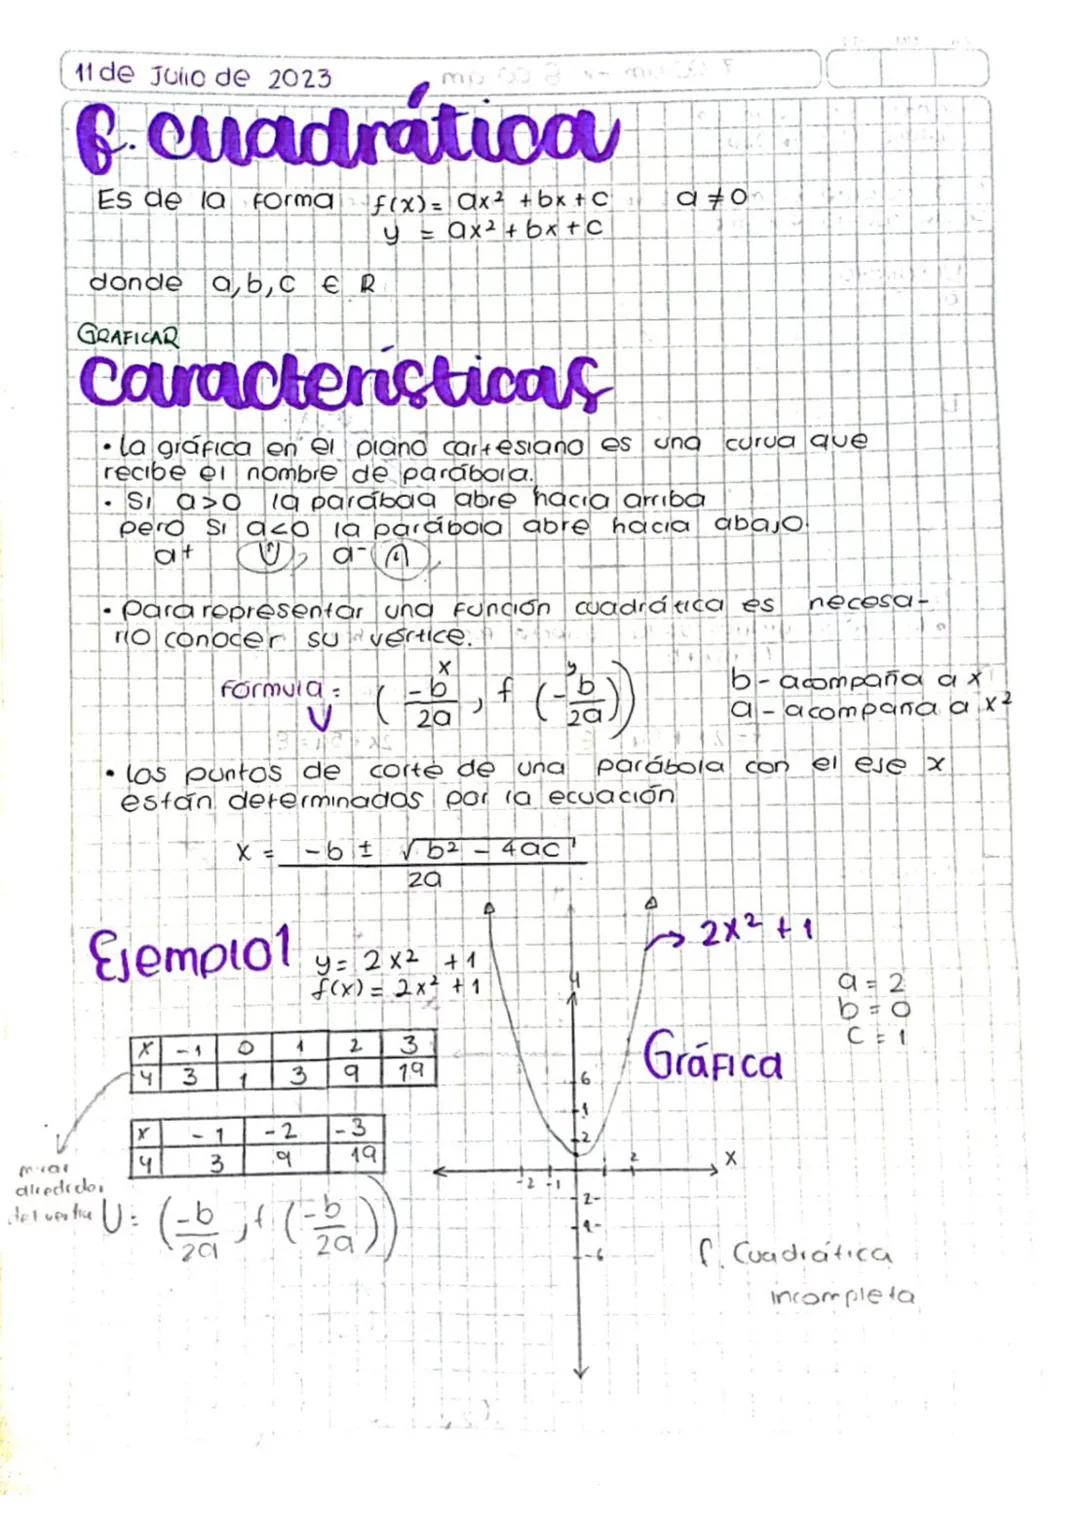 11 de Julio de 2023
f. cuadrática
Es de la forma f(x) = ax² + bx + c a ≠ 0
y = ax² + bx + c
donde a, b, c ∈ R
GRAFICAR
Características
• la gráfica en el plano cartesiano es una curva que
recibe el nombre de parábola.
• Si a>0 la parábola abre hacia arriba
pero si a<0 la parábola abre hacia abajo.
a+ a-
• para representar una función cuadrática es necesa-
rio conocer su vértice.
x y
Fórmula: V (-b/2a, f(-b/2a))
b - acompaña a x
a - acompaña a x²
• los puntos de corte de una parábola con el eje x
están determinados por la ecuación
x = -b ± √b² - 4ac / 2a
Ejemplo1
y = 2x² + 1
f(x) = 2x² + 1
→ 2x² + 1
a = 2
b = 0
c = 1
x -1 0 1 2 3
y 3 1 3 9 19
Gráfica
x -1 -2 -3
y 3 9 19
mirar
alrededor
del vertice
V = (-b/2a, f(-b/2a))
y
6
4
2
-2 -1 2 x
2-
4-
-6
f. Cuadrática
incompleta